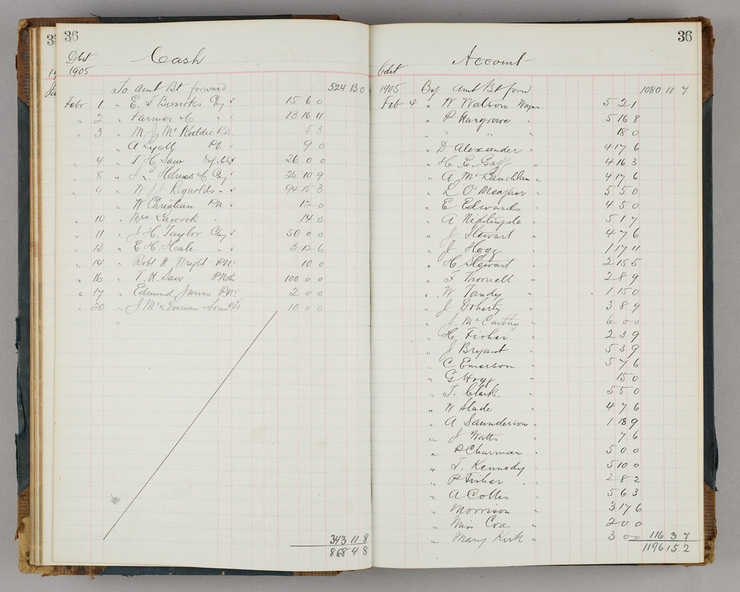 35
36
Dbt Cash
1905
To Amt Bt forward 524 13 0
Febr 1 " E. S. Berricks Chq " 15 6 0
" 2 " Farmer & C 13 16 11
" 3 " M. J. Mc
A Lyall P.O. " 9 0
" 4 " T. H. Saw " 26 0 0
" 8 " J. 26 10 9
" 9 " W J Reynolds " 94 15 3
W Christian P.N. " 12 0
" 10 " Mrs Laycock 14 0
" 11 " J. H. Taylor Chq " 50 0 0
" 13 " E. H. Hale " 3 12 6
" 14 " Robt H Wright P.N. 10 0
" 16 " T. H. Saw 100 0 0
" 17 " Edmund Jarvis P.N. 2 0 0
" 20 " J. Mc 10 0 0
"
343 11 8
868 4 8
36
Account
Cdit
1905 By Amt Bt forw 1080 11 7
Feb 4 " W Watson Wages 5 2 1
" P Hargrave " 5 16 8
" " " 18 0
" D Alexander " 4 17 6
" H. E. Goff " 4 16 3
" A McLauchlan " 4 17 6
" L O'Meagher " 5 5 0
" E Edwards " 4 5 0
" A Nightingale " 5 1 7
" J Stewart " 4 7 6
" J Hogg " 1 17 11
" H Stewart " 2 15 5
" F Thornell " 2 8 9
" W Tandy " 1 15 0
" J Doherty " 3 8 9
" J. McCarthy " 6 0 0
" H. Fisher " 2 3 9
" J Bryant " 5 3 9
" C Emerson " 5 7 6
" G Hogg " 15 0
" T. Clark " 5 5 0
" W Slade " 4 7 6
" A Saunderson " 1 18 9
" J Watts " 7 6
" P Charman " 5 0 0
" T. Kennedy " 5 10 0
" P Fisher " 2 8 2
" A Collis " 5 6 3
" Morrison " 3 17 6
" Wm Cox " 2 0 0
" Mary Kirk " 3 0 0 116 3 7
1196 15 2